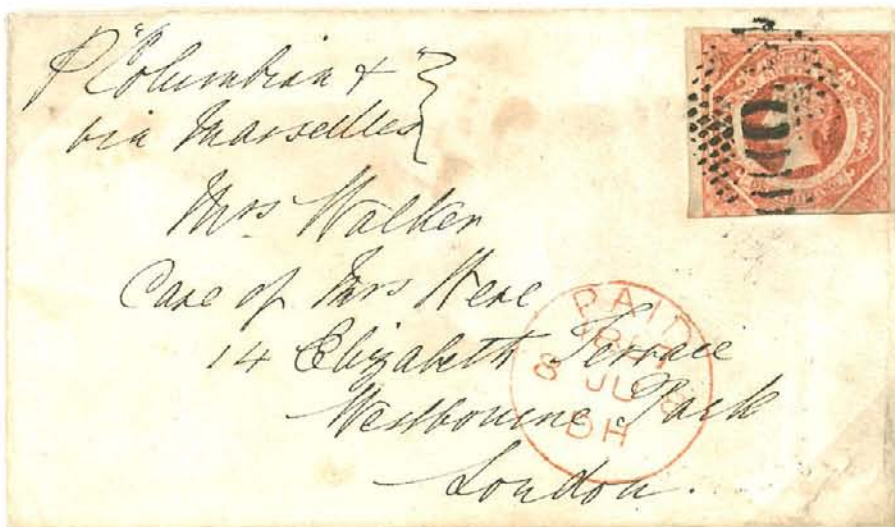 P "Columbian &"
via Marseilles
Mrs Walker
Care of Mrs Were
14 Elizabeth Terrace
Westbourne Park
London.
PAID
8 JU 8
DH